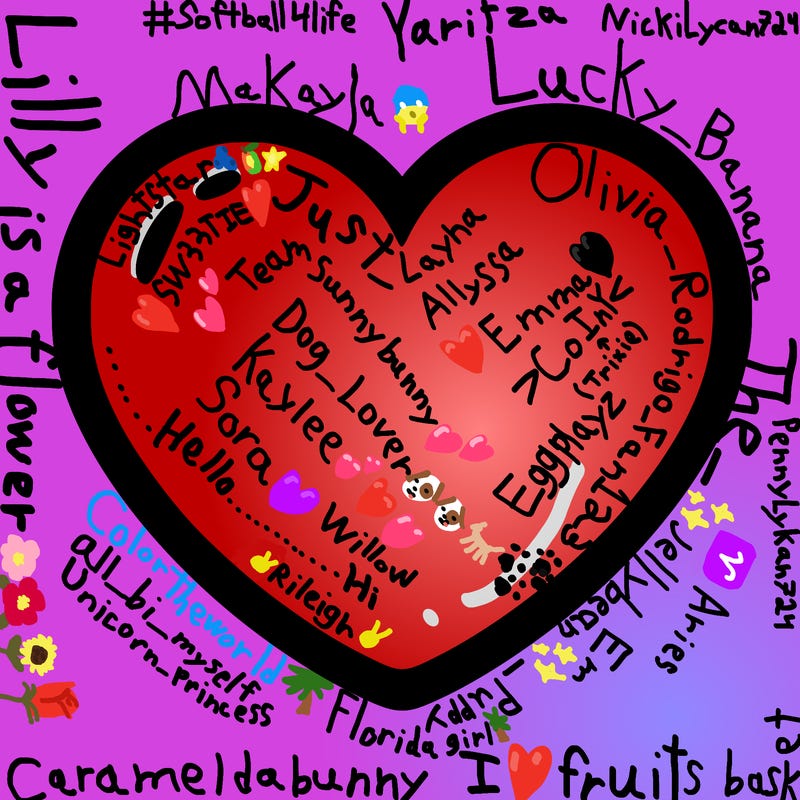 #Softball4life
Yaritza
NickiLycan724
MaKayla
Lucky_Banana
Lilly is a flower
Lightstar
SW33TIE
Just_Layha
Olivia_Rodrigo_Fan123
Team Sunnybunny
Allyssa
Emma
>Co Iny<
(Trixie)
Dog_Lover
Kaylee
Sora
Eggplayz
Hello............Hi
Willow
Rileigh
The_
PennyLykan724
Jellybean
Em
Aries
Colortheworld
all_bi_myself
Unicorn_Princess
_Puppy
Florida girl
Carameldabunny
I
fruits bask
et